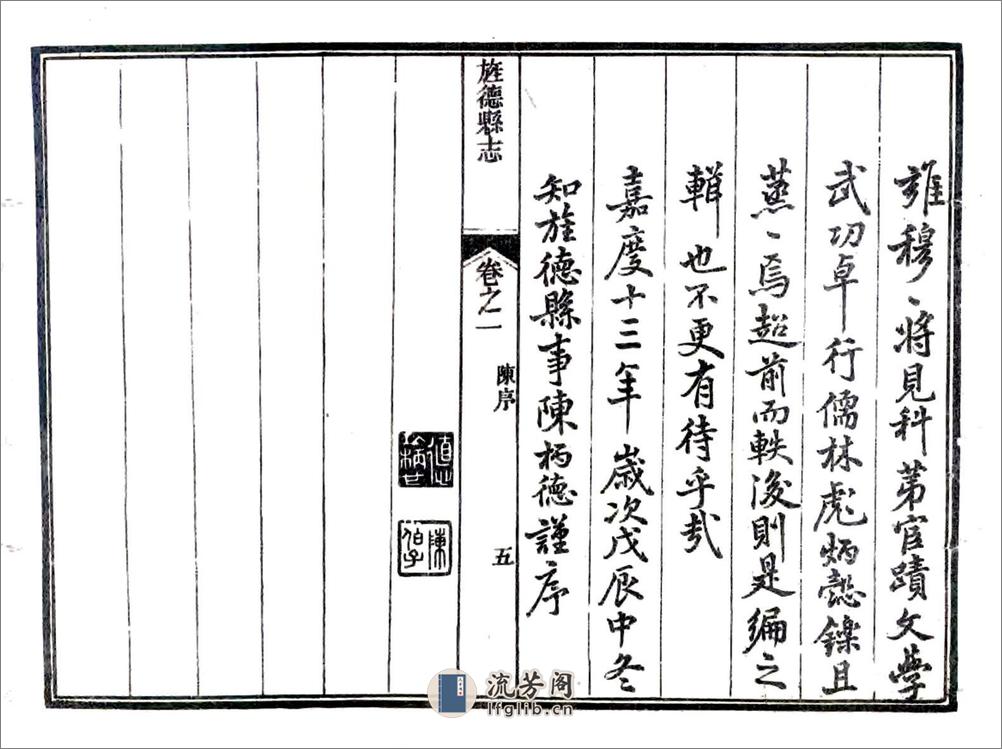 雍穆〻將見科苐官蹟文學
武功卓行儒林彪炳懿鑠且
蒸〻焉超前而軼後則是編之
輯也不更有待乎哉
嘉慶十三年歲次戊辰中冬
知旌德縣事陳柄德謹序
旌德縣志
卷之一
陳序
五
流芳阁
lfglib.cn